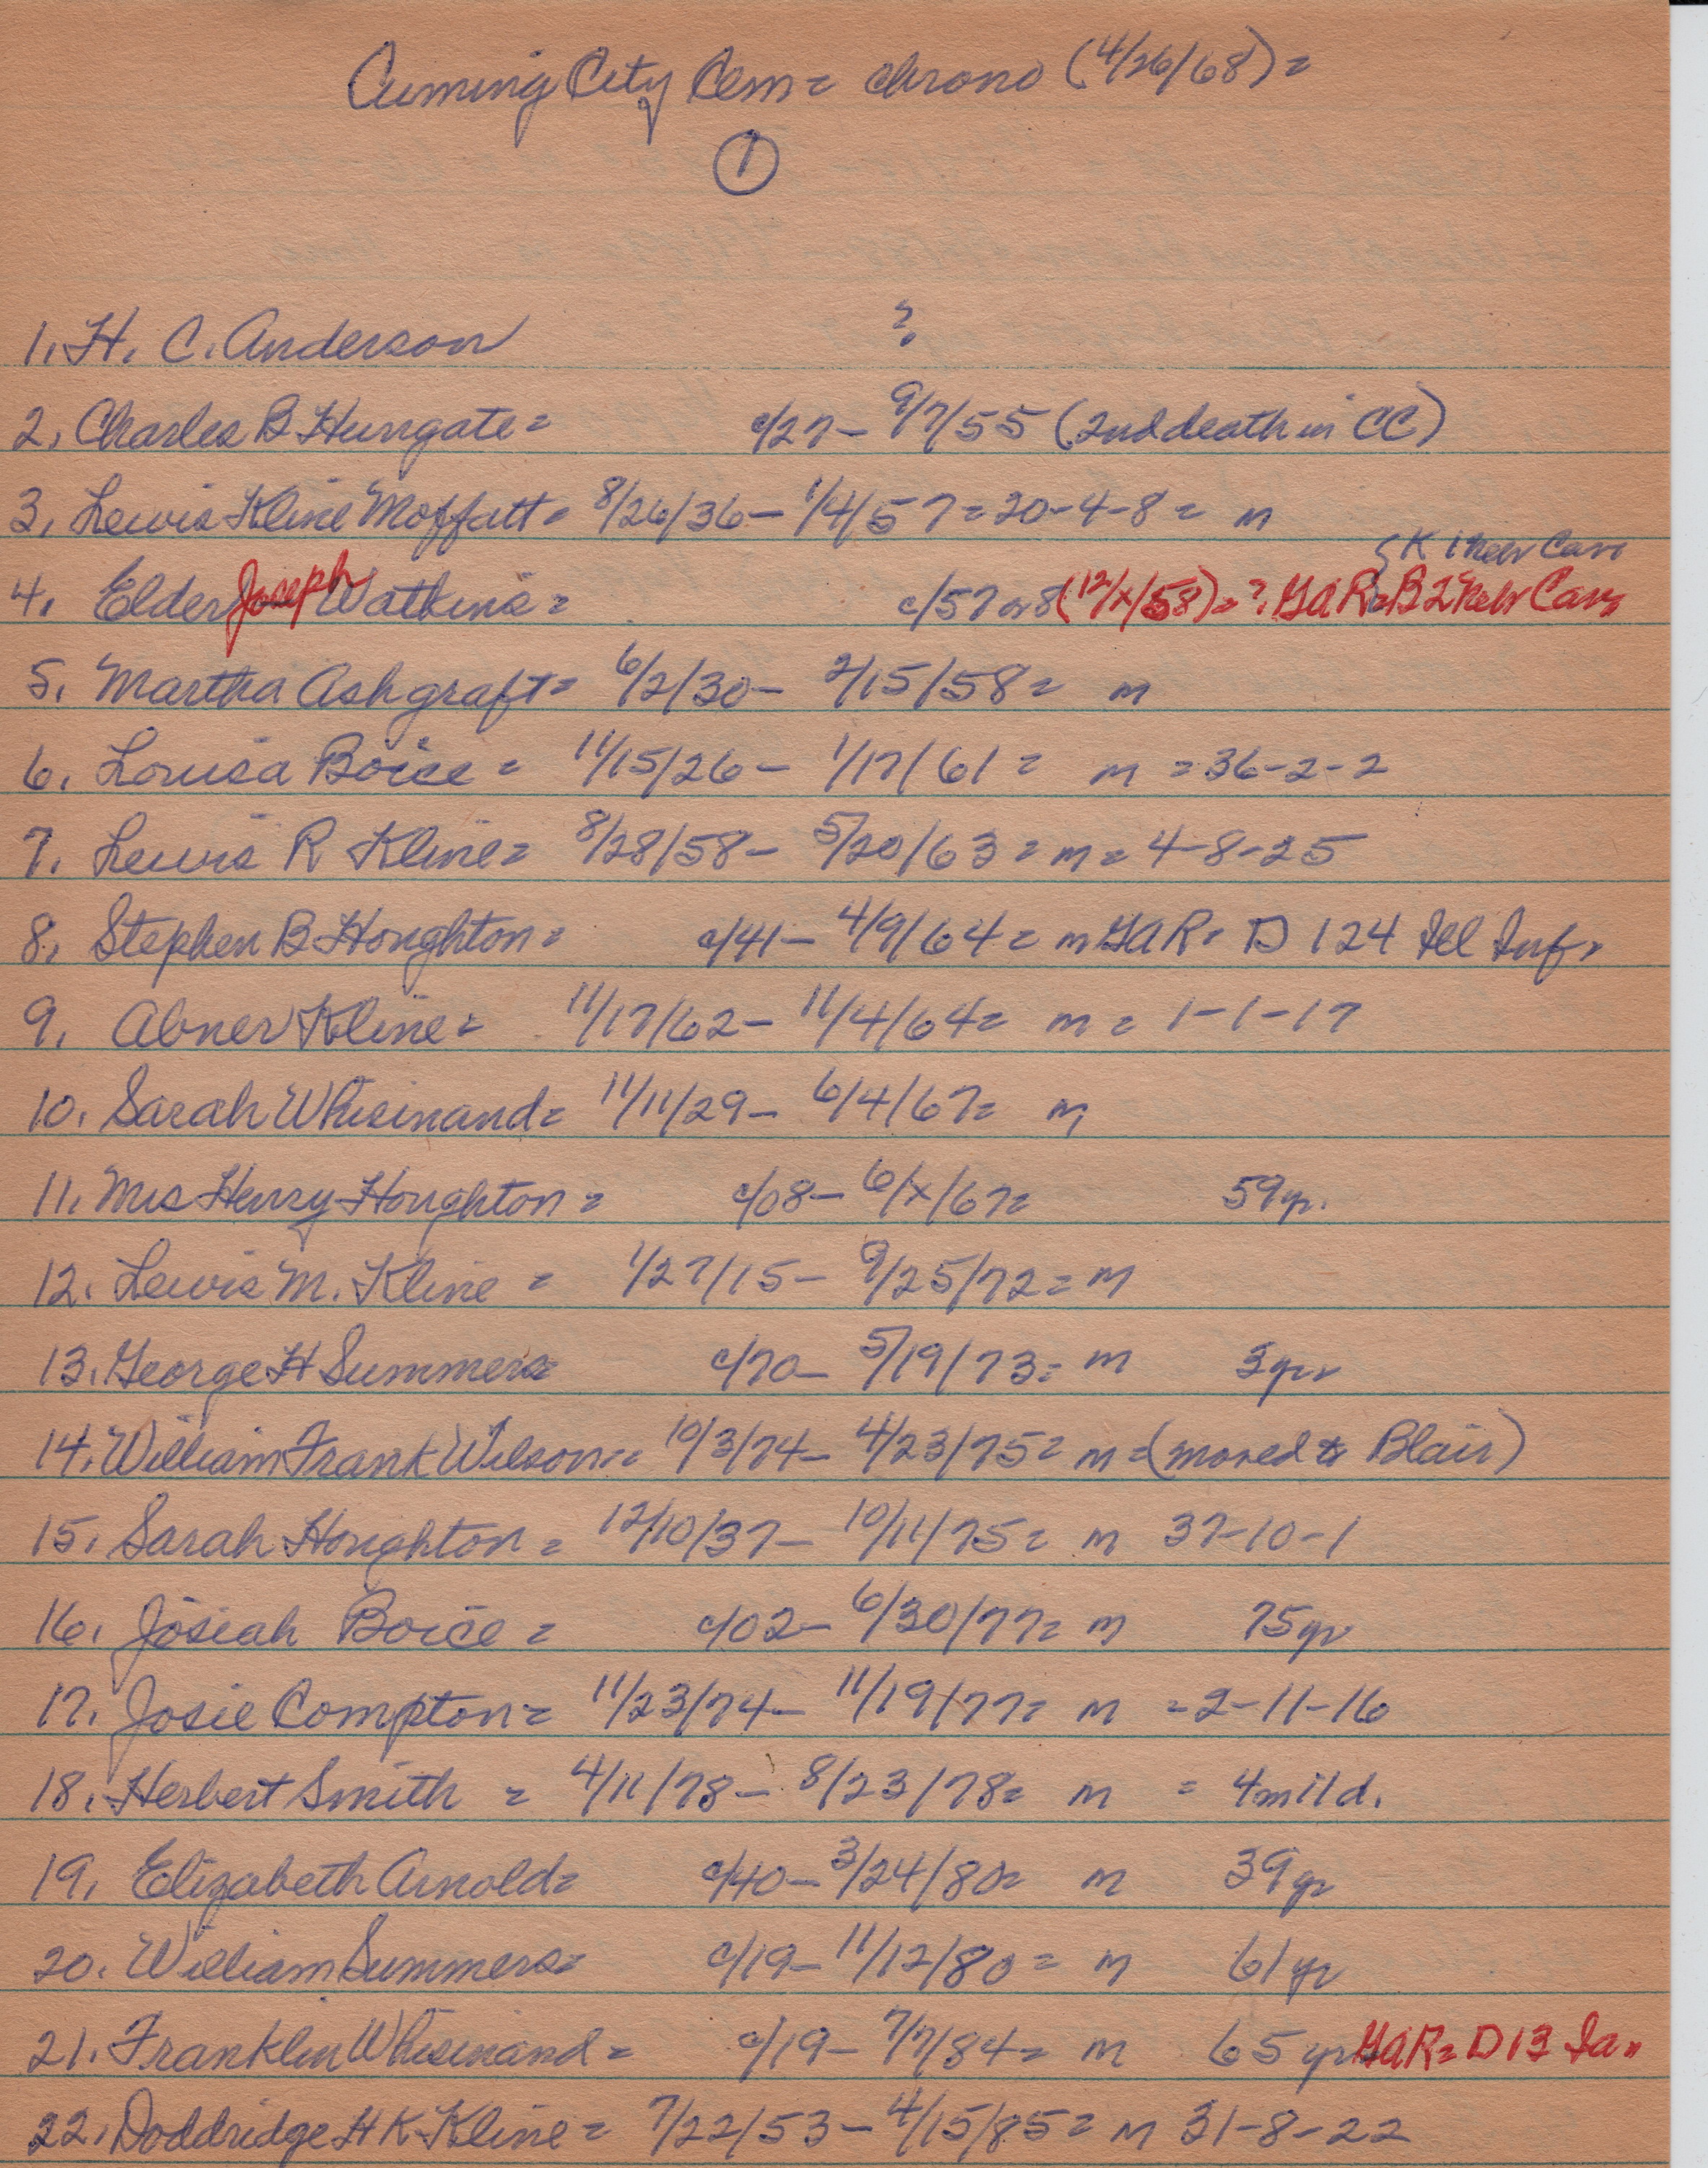 Cuming City Cem = chrono (4/26/68) =
1
1. H. C. Anderson ?
2. Charles B Hungate = c/27 - 9/7/55 (2nd death in CC)
3. Lewis Kline Moffatt = 8/26/36 - 1/4/57 = 20-4-8 = m
K 1 Neb Cav
4. Elder Joseph Watkins = c/57 or 8 (12/x/58) = ? GAR = B 2 Neb Cav
5. Martha Ashgraft = 6/2/30 - 2/15/58 = m
6. Louisa Boice = 11/15/26 - 1/17/61 = m = 36-2-2
7. Lewis R Kline = 8/28/58 - 5/20/63 = m = 4-8-25
8. Stephen B Houghton = c/41 - 4/9/64 = m GAR = D 124 Ill Inf.
9. Abner Kline = 11/17/62 - 11/4/64 = m = 1-1-17
10. Sarah Whisinand = 11/11/29 - 6/4/67 = m
11. Mrs Henry Houghton = c/08 - 6/x/67 = 59 yr.
12. Lewis M. Kline = 1/27/15 - 9/25/72 = m
13. George H Summers = c/70 - 5/19/73 = m 3 yr
14. William Frank Wilson = 10/3/74 - 4/23/75 = m = (moved to Blair)
15. Sarah Houghton = 12/10/37 - 10/11/75 = m 37-10-1
16. Josiah Boice = c/02 - 6/30/77 = m 75 yr
17. Josie Compton = 11/23/74 - 11/19/77 = m = 2-11-16
18. Herbert Smith = 4/11/78 - 8/23/78 = m = 4m 11d.
19. Elizabeth Arnold = c/40 - 3/24/80 = m 39 yr
20. William Summers = c/19 - 11/12/80 = m 61 yr
21. Franklin Whisinand = c/19 - 7/7/84 = m 65 yr GAR = D 13 Ia.
22. Doddridge H K Kline = 7/22/53 - 4/15/85 = m 31-8-22